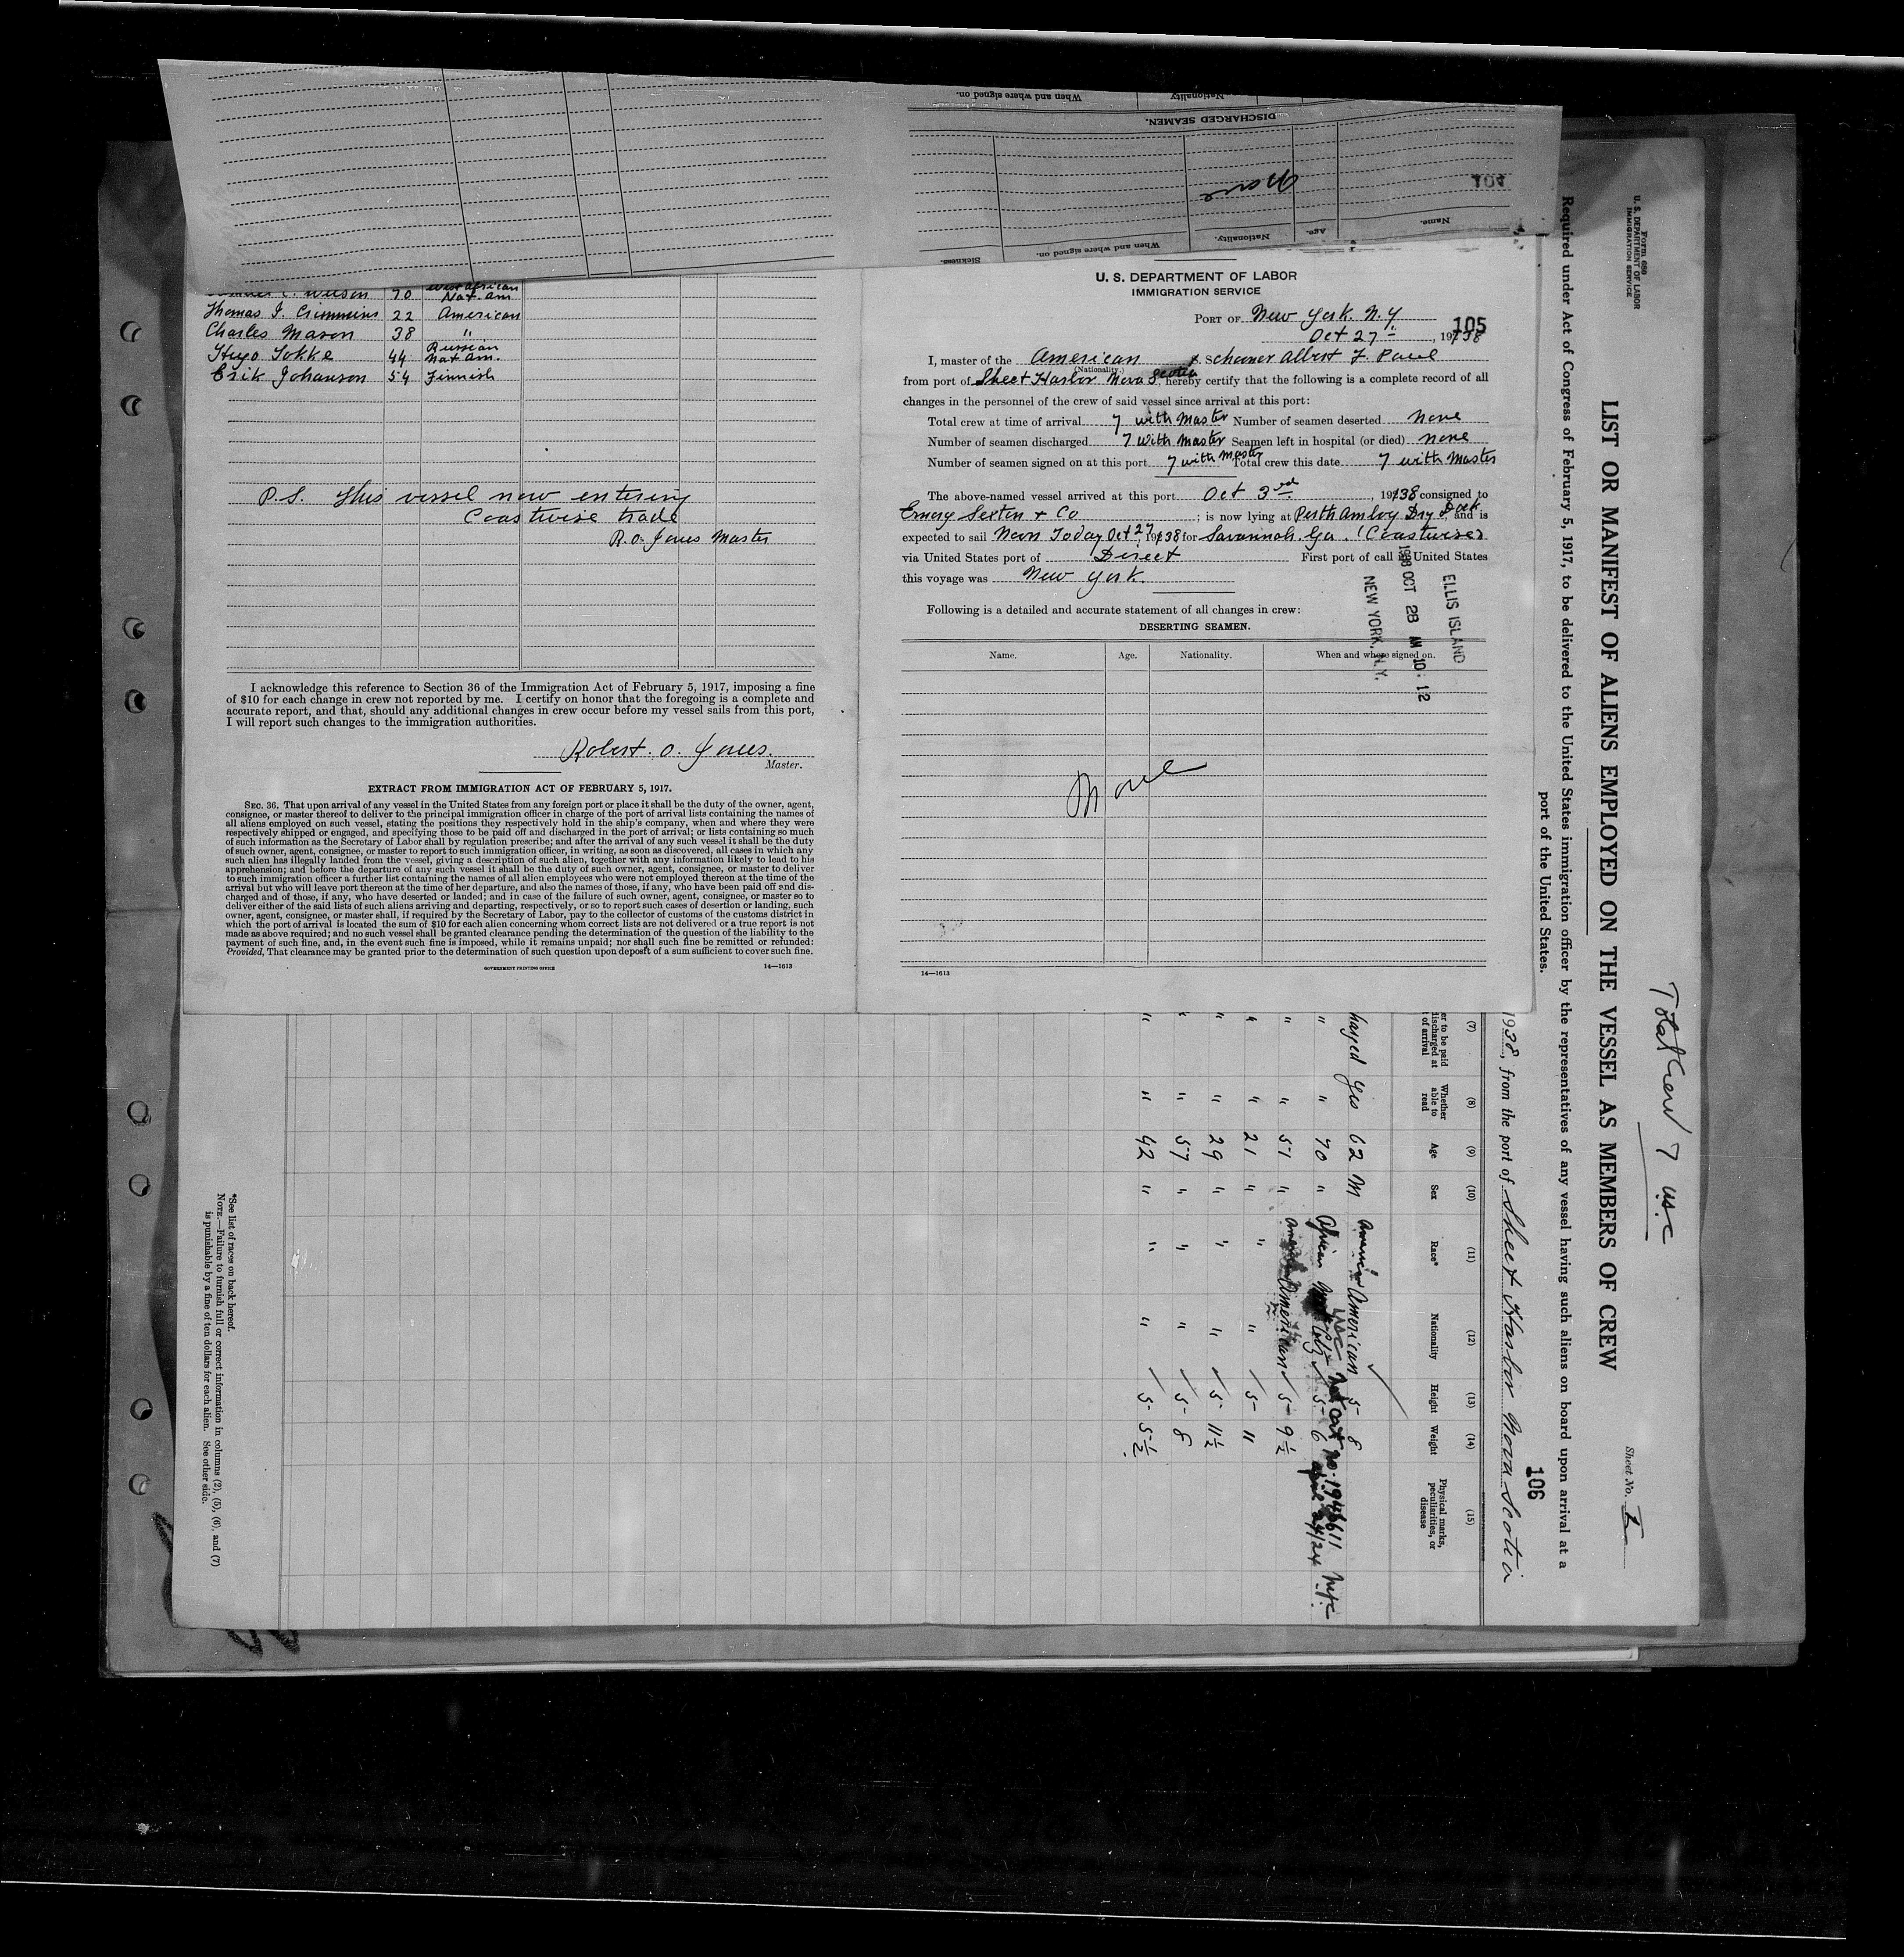 When and where signed on.
Nationality.
DISCHARGED SEAMEN.
None
104
Name.
Age.
Nationality.
When and where signed on.
Sickness.
Wilson 70 West African Nat. am
Thomas I. Crimmins 22 American
Charles Mason 38 "
Hugo Tokke 44 Russian Nat am.
Erik Johanson 54 Finnish
P.S. This vessel now entering
Coastwise trade
R.O. Jones Master
I acknowledge this reference to Section 36 of the Immigration Act of February 5, 1917, imposing a fine
of $10 for each change in crew not reported by me. I certify on honor that the foregoing is a complete and
accurate report, and that, should any additional changes in crew occur before my vessel sails from this port,
I will report such changes to the immigration authorities.
Robert. O. Jones.
Master.
EXTRACT FROM IMMIGRATION ACT OF FEBRUARY 5, 1917.
SEC. 36. That upon arrival of any vessel in the United States from any foreign port or place it shall be the duty of the owner, agent,
consignee, or master thereof to deliver to the principal immigration officer in charge of the port of arrival lists containing the names of
all aliens employed on such vessel, stating the positions they respectively hold in the ship's company, when and where they were
respectively shipped or engaged, and specifying those to be paid off and discharged in the port of arrival; or lists containing so much
of such information as the Secretary of Labor shall by regulation prescribe; and after the arrival of any such vessel it shall be the duty
of such owner, agent, consignee, or master to report to such immigration officer, in writing, as soon as discovered, all cases in which any
such alien has illegally landed from the vessel, giving a description of such alien, together with any information likely to lead to his
apprehension; and before the departure of any such vessel it shall be the duty of such owner, agent, consignee, or master to deliver
to such immigration officer a further list containing the names of all alien employees who were not employed thereon at the time of the
arrival but who will leave port thereon at the time of her departure, and also the names of those, if any, who have been paid off and dis-
charged and of those, if any, who have deserted or landed; and in case of the failure of such owner, agent, consignee, or master so to
deliver either of the said lists of such aliens arriving and departing, respectively, or so to report such cases of desertion or landing, such
owner, agent, consignee, or master shall, if required by the Secretary of Labor, pay to the collector of customs of the customs district in
which the port of arrival is located the sum of $10 for each alien concerning whom correct lists are not delivered or a true report is not
made as above required; and no such vessel shall be granted clearance pending the determination of the question of the liability to the
payment of such fine, and, in the event such fine is imposed, while it remains unpaid; nor shall such fine be remitted or refunded:
Provided, That clearance may be granted prior to the determination of such question upon deposit of a sum sufficient to cover such fine.
GOVERNMENT PRINTING OFFICE
14—1613
U. S. DEPARTMENT OF LABOR
IMMIGRATION SERVICE
PORT OF New York. N.Y
105
Oct 27th, 1938
I, master of the American Schooner Albert F. Paul
(Nationality.)
from port of Sheet Harbor Nova Scotia, hereby certify that the following is a complete record of all
changes in the personnel of the crew of said vessel since arrival at this port:
Total crew at time of arrival 7 with Master Number of seamen deserted None
Number of seamen discharged 7 With Master Seamen left in hospital (or died) None
Number of seamen signed on at this port 7 with Master Total crew this date 7 with Master
The above-named vessel arrived at this port Oct 3rd, 1938 consigned to
Emery Sexton & Co; is now lying at Perth Amboy Dry Dock, and is
expected to sail Noon Today Oct 27, 1938 for Savannah. Ga. (Coastwise)
via United States port of Direct First port of call in United States
this voyage was New York.
Following is a detailed and accurate statement of all changes in crew:
DESERTING SEAMEN.
Name. Age. Nationality. When and where signed on.
None
14—1613
ELLIS ISLAND
1938 OCT 28 AM 10:12
NEW YORK, N.Y.
Form 689
U. S. DEPARTMENT OF LABOR
IMMIGRATION SERVICE
Total Crew 7 USC
Sheet No. 1
LIST OR MANIFEST OF ALIENS EMPLOYED ON THE VESSEL AS MEMBERS OF CREW
Required under Act of Congress of February 5, 1917, to be delivered to the United States immigration officer by the representatives of any vessel having such aliens on board upon arrival at a
port of the United States.
106
1938, from the port of Sheet Harbor Nova Scotia
(7) (8) (9) (10) (11) (12) (13) (14) (15)
er to be paid discharged at of arrival
Whether able to read
Age
Sex
Race*
Nationality
Height
Weight
Physical marks, peculiarities, or disease
harged Yes 62 M American American 5 8
" " 70 " African 5 6 Nat Cert no. April 24/24 NYC
" " 51 " American 5 9½
" " 21 " " " 5 11
" " 29 " " " 5 11½
" " 57 " " " 5 8
" " 42 " " " 5 5½
*See list of races on back hereof.
NOTE.—Failure to furnish full or correct information in columns (2), (5), (6), and (7)
is punishable by a fine of ten dollars for each alien. See other side.